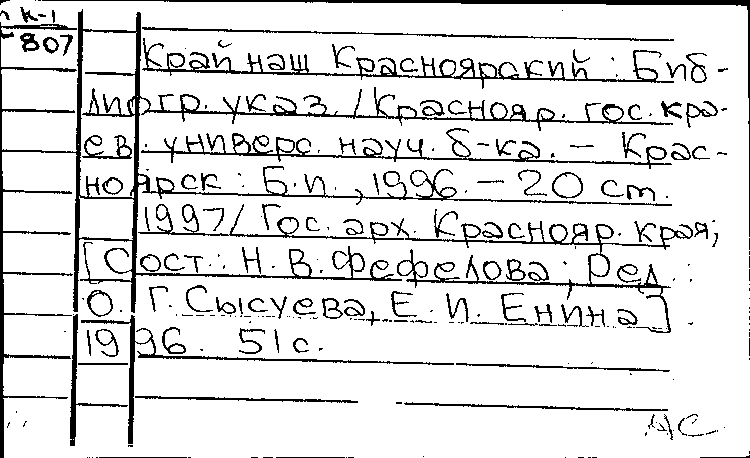 К-1
807
Край наш Красноярский : Биб-
лиогр. указ. / Краснояр. гос. кра-
ев. универс. науч. б-ка. – Крас-
ноярск : Б.и., 1996. – 20 см.
1997 / Гос. арх. Краснояр. края;
[Сост.: Н. В. Фефелова ; Ред.:
О. Г. Сысуева, Е. И. Енина].
1996. 51 с.
АС